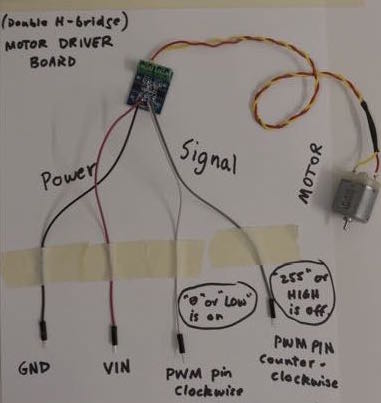 (Double H-bridge)
MOTOR DRIVER
BOARD
Power
Signal
MOTOR
"0" or "LOW"
is on
"255" or
HIGH
is off
GND
VIN
PWM pin
Clockwise
PWM PIN
Counter-
clockwise